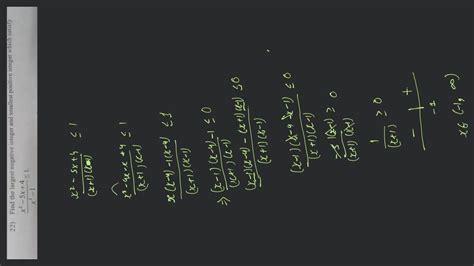 22) Find the largest negative integer and smallest positive integer which satisfy
x² - 5x + 4 / x² - 1 ≤ 1
x² - 5x + 4 / (x+1)(x-1) ≤ 1
x² - 4x - x + 4 / (x+1)(x-1) ≤ 1
x(x-4) - 1(x-4) / (x+1)(x-1) ≤ 1
⇒ (x-1)(x-4) / (x+1)(x-1) - 1 ≤ 0
(x-1)(x-4) - (x+1)(x-1) / (x+1)(x-1) ≤ 0
(x-1)(x-4-x-1) / (x+1)(x-1) ≤ 0
(x-1) / (x+1)(x-1) ≥ 0
1 / (x+1) ≥ 0
- +
-1
x ∈ (-1, ∞)